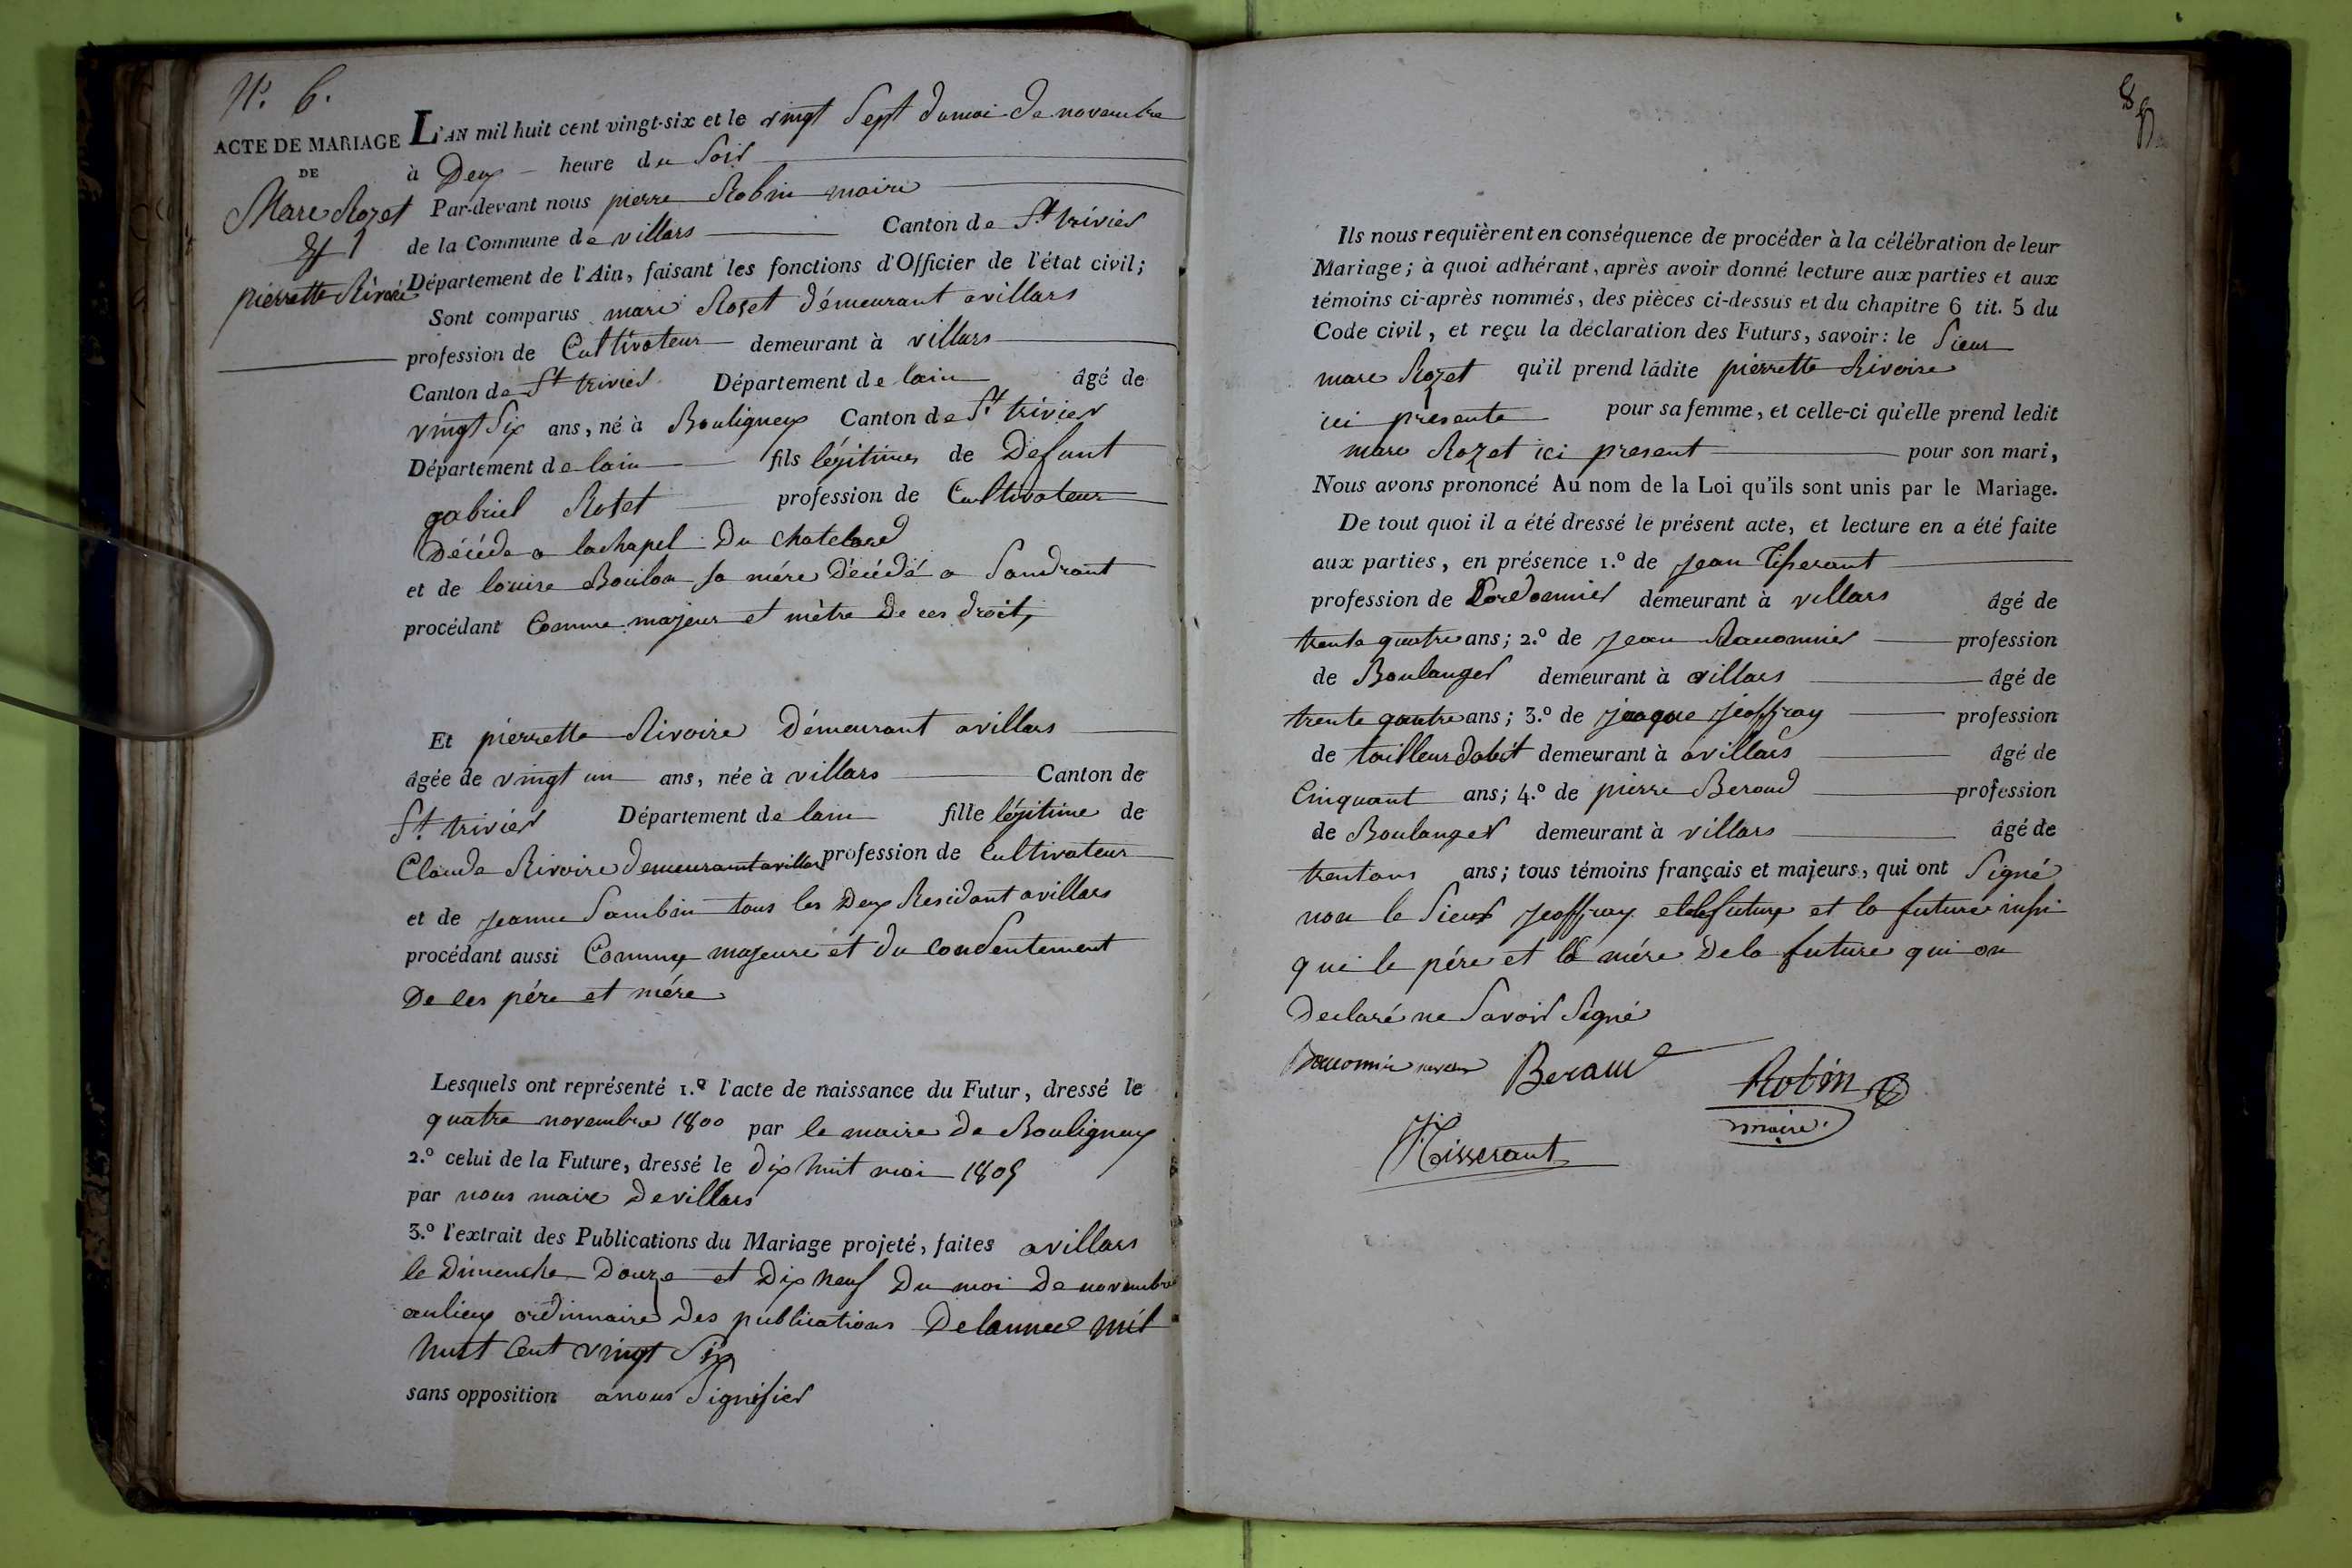 N°. 6.
ACTE DE MARIAGE
DE
Marc Rozet
et
pierrette Rivoire
L'AN mil huit cent vingt-six et le vingt Sept du moi de novembre
à Deux heure du Soir
Par-devant nous pierre Robin maire
de la Commune de villars Canton de St trivier
Département de l'Ain, faisant les fonctions d'Officier de l'état civil;
Sont comparus marc Rozet démeurant avillars
profession de Cultivateur demeurant à villars
Canton de St trivier Département de lain âgé de
vingt Six ans, né à Bouligneux Canton de St. trivier
Département de lain fils légitimes de Defunt
gabriel Rozet profession de Cultivateur
Décéde a lachapel Du chatelard
et de louise Boulon sa mére Décédé a Sandrant
procédant Comme majeur et mètre De ces droit,
Et pierrette Rivoire Démeurant avillars
âgée de vingt un ans, née à villars Canton de
St. trivier Département de lain fille légitime de
Claude Rivoire demeurant avillars profession de Cultivateur
et de jeanne Sambin tous les Deux Residant avillars
procédant aussi Comme majeure et du Consentement
De ses pére et mére
Lesquels ont représenté 1.° l'acte de naissance du Futur, dressé le
quatre novembre 1800 par le maire de Bouligneux
2.° celui de la Future, dressé le dix huit mai 1805
par nous maire De villars
3.° l'extrait des Publications du Mariage projeté, faites avillars
le Dimenche Douze et Dix neuf Du moi De novembre
aulieux ordinnaire Des publications Delannee mil
huit Cent vingt Six
sans opposition anous Signifier
Ils nous requièrent en conséquence de procéder à la célébration de leur
Mariage; à quoi adhérant, après avoir donné lecture aux parties et aux
témoins ci-après nommés, des pièces ci-dessus et du chapitre 6 tit. 5 du
Code civil, et reçu la déclaration des Futurs, savoir: le Sieur
marc Rozet qu'il prend ladite pierrette Rivoire
ici presente pour sa femme, et celle-ci qu'elle prend ledit
marc Rozet ici present pour son mari,
Nous avons prononcé Au nom de la Loi qu'ils sont unis par le Mariage.
De tout quoi il a été dressé le présent acte, et lecture en a été faite
aux parties, en présence 1.° de jean Tisserant
profession de Cordonnier demeurant à villars âgé de
trente quatre ans; 2.° de jean profession
de Boulanger demeurant à villars âgé de
trente quatre ans; 3.° de jacque jeoffray profession
de tailleur dabit demeurant à avillars âgé de
Cinquant ans; 4.° de pierre Beroud profession
de Boulanger demeurant à villars âgé de
trentans ans; tous témoins français et majeurs, qui ont Signé
non le Sieur jeoffray et le futur et la future insi
que le pére et la mére De la future qui on
Declaré ne Savoir Signé
Beraud
Robin
maire
J Tisserant